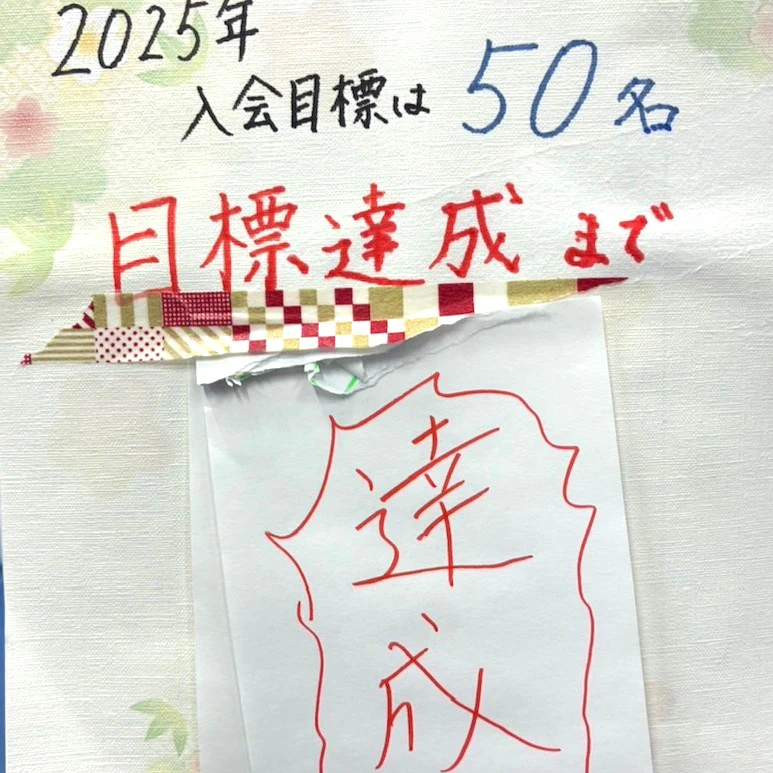 2025年
入会目標は50名
目標達成まで
達
成